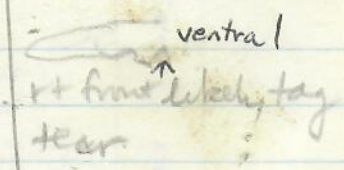 ventral
rt front likely, tag
tear